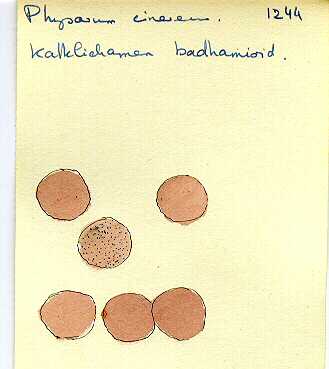 Physarum cinereum. 1244
Kalklichamen badhamioid.